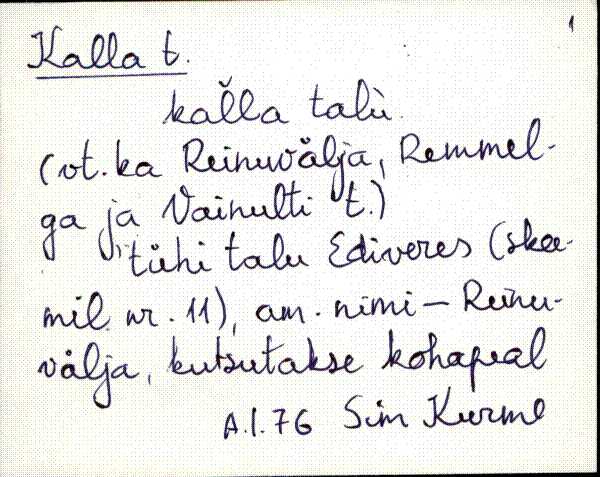 1
Kalla t.
kal̆la talù.
(vt. ka Reinuvälja, Remmel-
ga ja Vainulti t.)
tühi talu Ediveres (skee-
mil nr. 11), am. nimi – Reinu-
välja, kutsutakse kohapeal
A.l.76 Sim Kurme